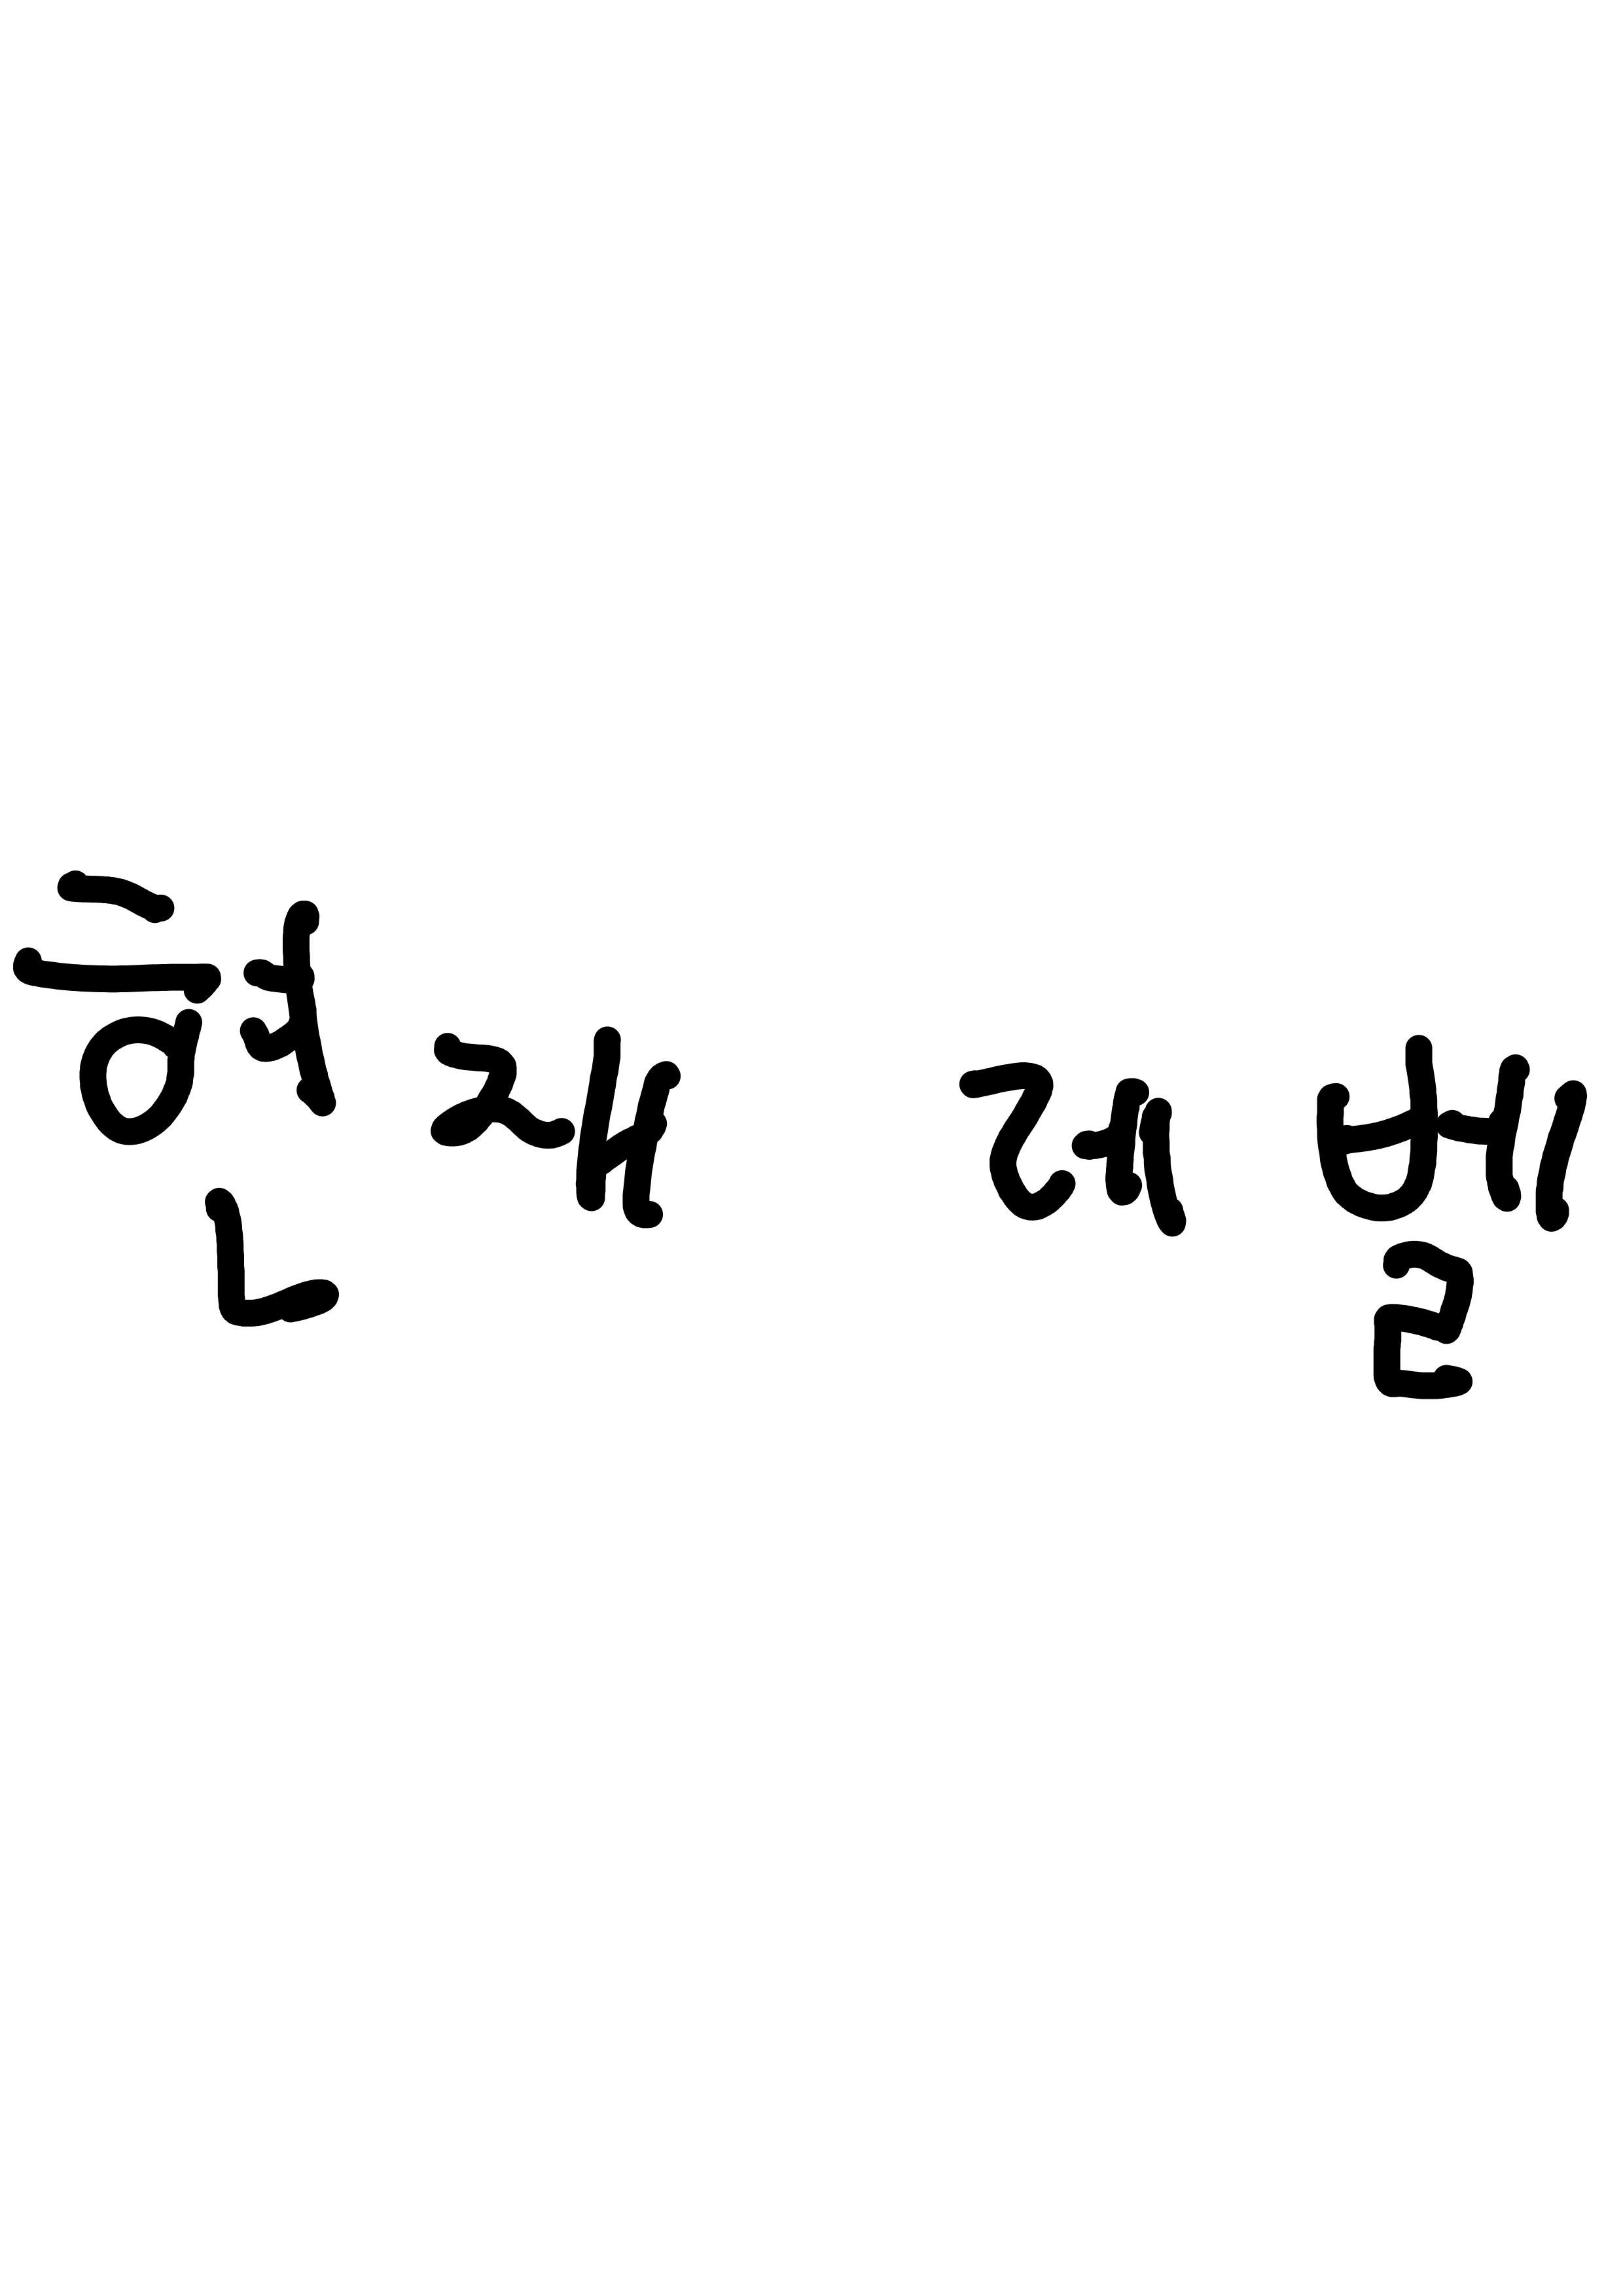 현재 레벨